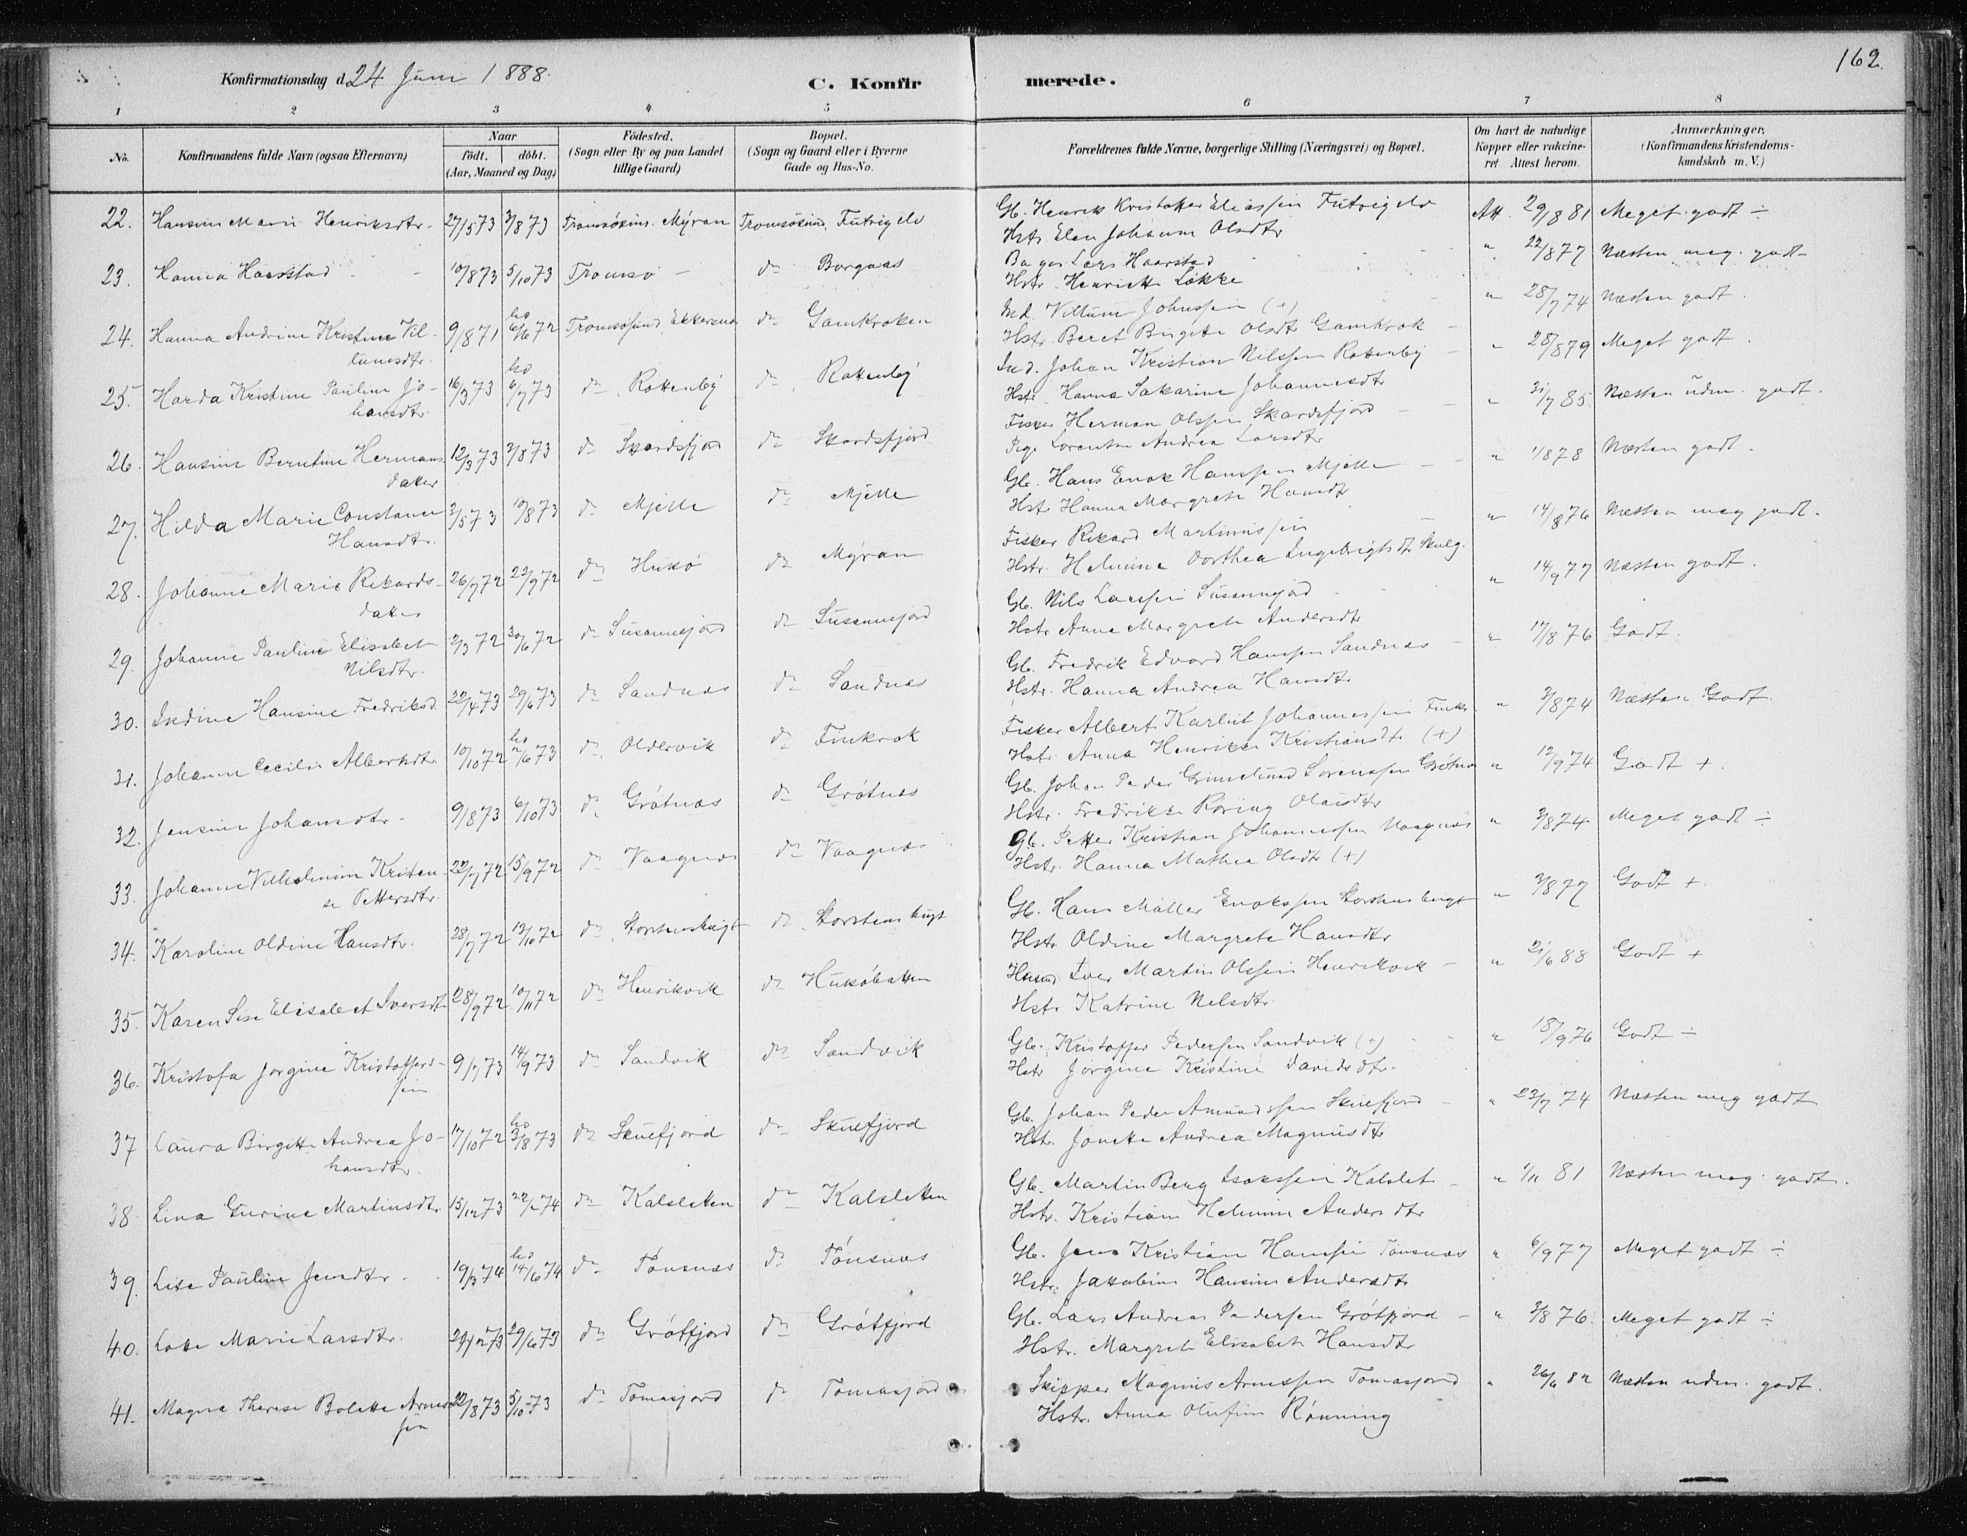 162.
Konfirmationsdag d. 24 Juni 1888.
C. Konfirmerede.
1 2 3 4 5 6 7 8
No. Konfirmandens fulde Navn (ogsaa Efternavn) Naar født. døbt. (Aar, Maaned og Dag) Fødested. (Sogn eller By og paa Landet tillige Gaard) Bopæl. (Sogn og Gaard eller i Byerne Gade og Hus-No. Forældrenes fulde Navne, borgerlige Stilling (Næringsvei) og Bopæl. Om havt de naturlige Kopper eller vakcineret Attest herom. Anmærkninger. (Konfirmandens Kristendomskundskab m. V.)
22. Hansine Marie Henriksdtr. 27/5 73 3/8 73 Tromsøsund. Myran Tromsøsund Futrigelv Gb. Henrik Kristoffer Eliassen Futrigelv Att. 29/8 81 Meget godt ÷
Hstr Elen Johanna Olsdtr
23. Hanna Haarstad 10/8 73 5/10 73 Tromsø do Borgnæs Bager Lars Haarstad " 22/8 77 Næsten meg. godt
Hstr. Henriette Løkke
24. Hanna Andrine Kristine Vil- 9/8 71 6/6 72 Tromsøsund do Gamkroken Ind. Villum Johnsen (+) " 28/7 74 Næsten godt.
tumsdtr. Hstr. Beret Birgitte Olsdtr Gamkrok
25. Harda Kristine Pauline Jo- 16/3 73 6/7 73 do Rottenby do Rottenby Ind. Johan Kristian Nilssen Rottenby " 28/8 79 Meget godt.
hansdtr. Hstr. Hanna Sakarine Johannesdtr
26. Hansine Berntine Hermans 12/3 73 3/8 73 do Skardsfjord do Skardsfjord Fisker Herman Olssen Skardsfjord " 31/7 85 Næsten udm. godt.
datter Pige Lorentse Andrea Larsdtr
27. Hilda Marie Constance 3/5 73 10/8 73 do Mjelle do Mjelle Gb. Hans Enok Hanssen Mjelle " 1/8 78 Næsten godt.
Hansdtr. Hstr Hanna Margrete Hansdtr
28. Johanne Marie Rikards- 26/7 72 22/9 72 do Hukø do Myran Fisker Rikard Martinussen " 14/8 76 Næsten meg godt.
datter Hstr. Helmine Dorthea Ingebrigtsdtr
29. Johanne Pauline Elisabet 2/3 72 30/6 72 do Susannejord do Susannejord Gb. Nils Larssen Susannejord " 14/9 77 Næsten godt.
Nilsdtr. Hstr Anne Margrete Andersdtr
30. Indine Hansine Fredriksd. 22/4 73 29/6 73 do Sandnæs do Sandnæs Gb. Fredrik Edvard Hanssen Sandnæs " 17/8 76 Godt.
Hstr. Hanna Andrea Hansdtr
31. Johanne Cecilie Albertsdtr 10/10 72 2/6 73 do Oldervik do Finkrok Fisker Albert Karlut Johannessen Finkr. " 3/8 74 Næsten Godt.
Hstr Anna Henrikke Kristiansdtr (+)
32. Jensine Johansdtr. 9/8 73 6/10 73 do Grøtnæs do Grøtnæs Gb. Johan Peder Grimelund Sørenssen Grøtnæs " 12/9 74 Godt +.
Hstr. Fredrikke Røring Olausdtr
33. Johanne Vilhelmine Kristen- 22/7 72 15/9 72 do Vaagnæs do Vaagnæs Gb. Petter Kristian Johannessen Vaagnæs " 3/8 74 Meget godt ÷
se Pettersdtr. Hstr. Hanna Mathea Olsdtr (+)
34. Karoline Oldine Hansdtr. 28/7 72 13/10 72 do Storstensbugt do Storstensbugt Gb. Hans Møller Enokssen Storstensbugt " 3/8 77 Godt +.
Hstr Oldine Margrete Hansdtr
35. Karen Lise Elisabet Iversdtr 28/9 72 10/11 72 do Henrikvik do Hukøbotten Husmd. Iver Martin Olssen Henrikvik " 21/6 88 Godt +
Hstr Katrine Nilsdtr
36. Kristofa Jørgine Kristoffers- 9/7 73 14/9 73 do Sandvik do Sandvik Gb. Kristoffer Pedersen Sandvik (+) " 18/9 76 Godt ÷
sen Hstr Jørgine Kristine Davidsdtr.
37 Laura Birgitte Andrea Jo- 17/10 72 3/8 73 do Skulfjord do Skulfjord Gb. Johan Peder Amundssen Skulfjord " 23/7 74 Næsten meg godt
hansdtr. Hstr. Jonette Andrea Magnusdtr
38. Lina Gurine Martinsdtr 15/12 73 22/2 74 do Kalsletten do Kalsletten Gb. Martin Berg Isakssen Kalslet " 1/11 81 Næsten meg. godt.
Hstr. Kristiane Helmine Andersdtr
39. Lise Pauline Jensdtr. 19/3 74 14/6 74 do Tønsnæs do Tønsnæs Gb. Jens Kristian Hanssen Tønsnæs " 6/9 77 Meget godt ÷
Hstr. Jakobine Hansine Andersdtr
40. Lotte Marie Larsdtr. 29/6 73 do Grøtfjord do Grøtfjord Gb. Lars Andreas Pedersen Grøtfjord " 3/8 76. Meget godt ÷
Hstr. Margrete Elisabet Hansdtr
41. Magna Therese Bolette Arnes- 22/8 73 5/10 73 do Tomasjord do Tomasjord Skipper Magnus Arnessen Tomasjord " 26/6 82 Næsten udm. godt.
sen Hstr. Anna Olufine Rønning